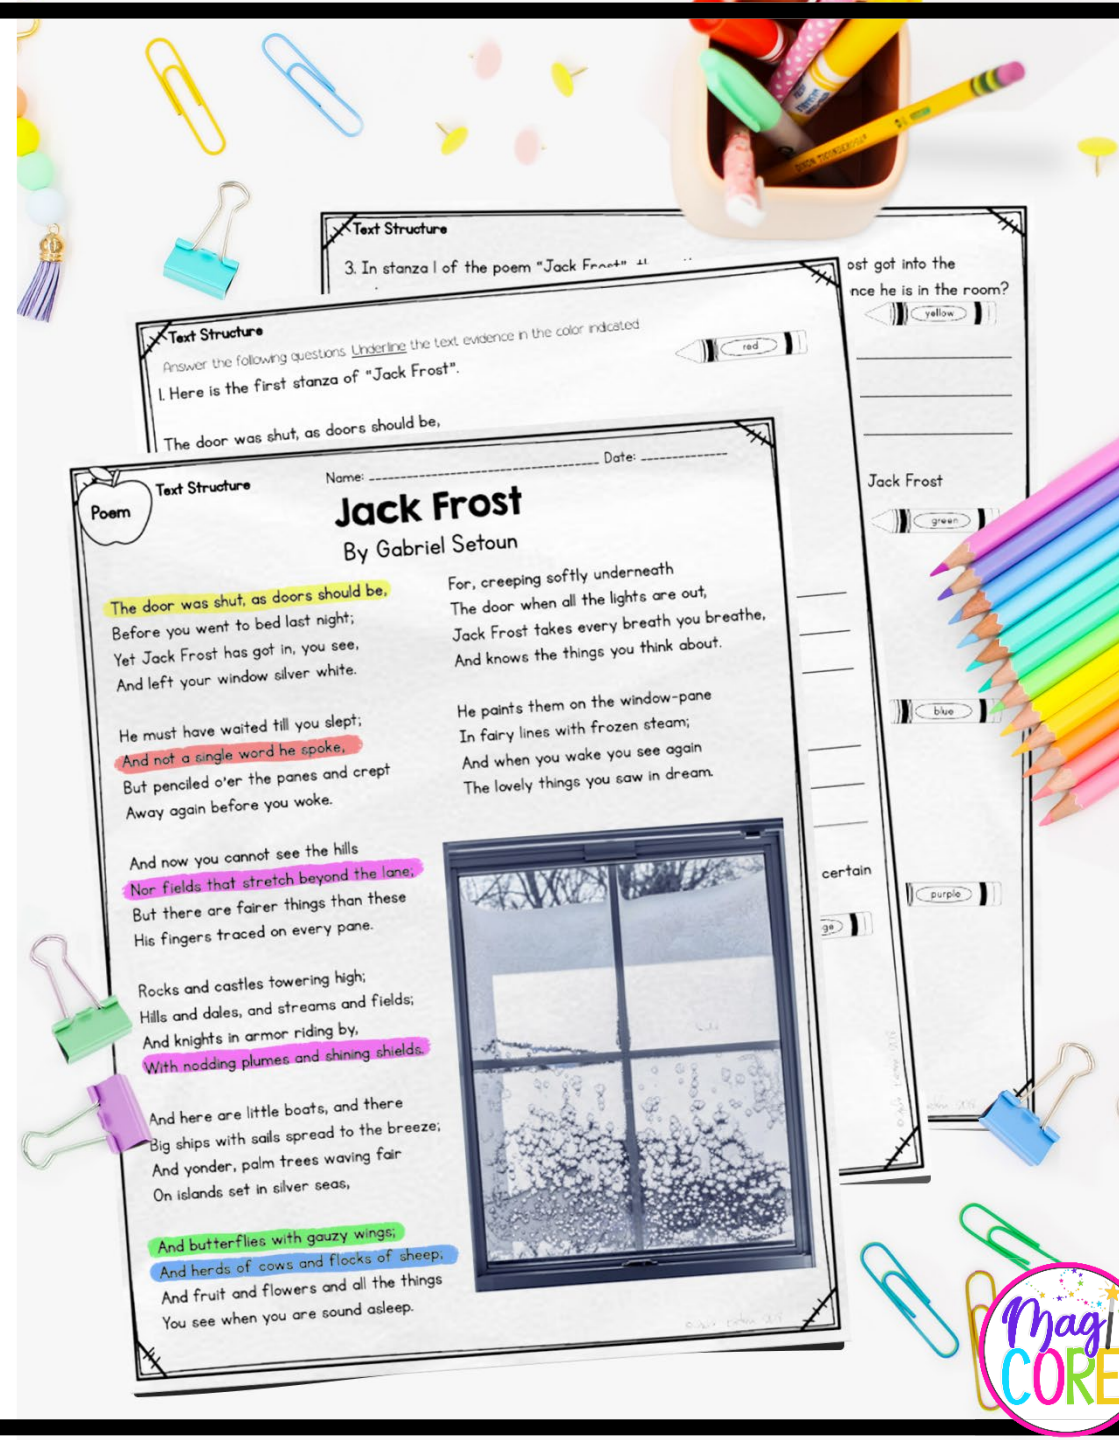 Text Structure
3. In stanza 1 of the poem "Jack Frost"
ost got into the
nce he is in the room?
yellow
Jack Frost
green
blue
purple
Text Structure
Answer the following questions. Underline the text evidence in the color indicated.
red
1. Here is the first stanza of "Jack Frost".
The door was shut, as doors should be,
certain
Poem
Text Structure
Name:
Date:
Jack Frost
By Gabriel Setoun
The door was shut, as doors should be,
Before you went to bed last night;
Yet Jack Frost has got in, you see,
And left your window silver white.
He must have waited till you slept;
And not a single word he spoke,
But penciled o'er the panes and crept
Away again before you woke.
And now you cannot see the hills
Nor fields that stretch beyond the lane;
But there are fairer things than these
His fingers traced on every pane.
Rocks and castles towering high;
Hills and dales, and streams and fields;
And knights in armor riding by,
With nodding plumes and shining shields.
And here are little boats, and there
Big ships with sails spread to the breeze;
And yonder, palm trees waving fair
On islands set in silver seas,
And butterflies with gauzy wings;
And herds of cows and flocks of sheep;
And fruit and flowers and all the things
You see when you are sound asleep.
For, creeping softly underneath
The door when all the lights are out,
Jack Frost takes every breath you breathe,
And knows the things you think about.
He paints them on the window-pane
In fairy lines with frozen steam;
And when you wake you see again
The lovely things you saw in dream.
Magi
CORE